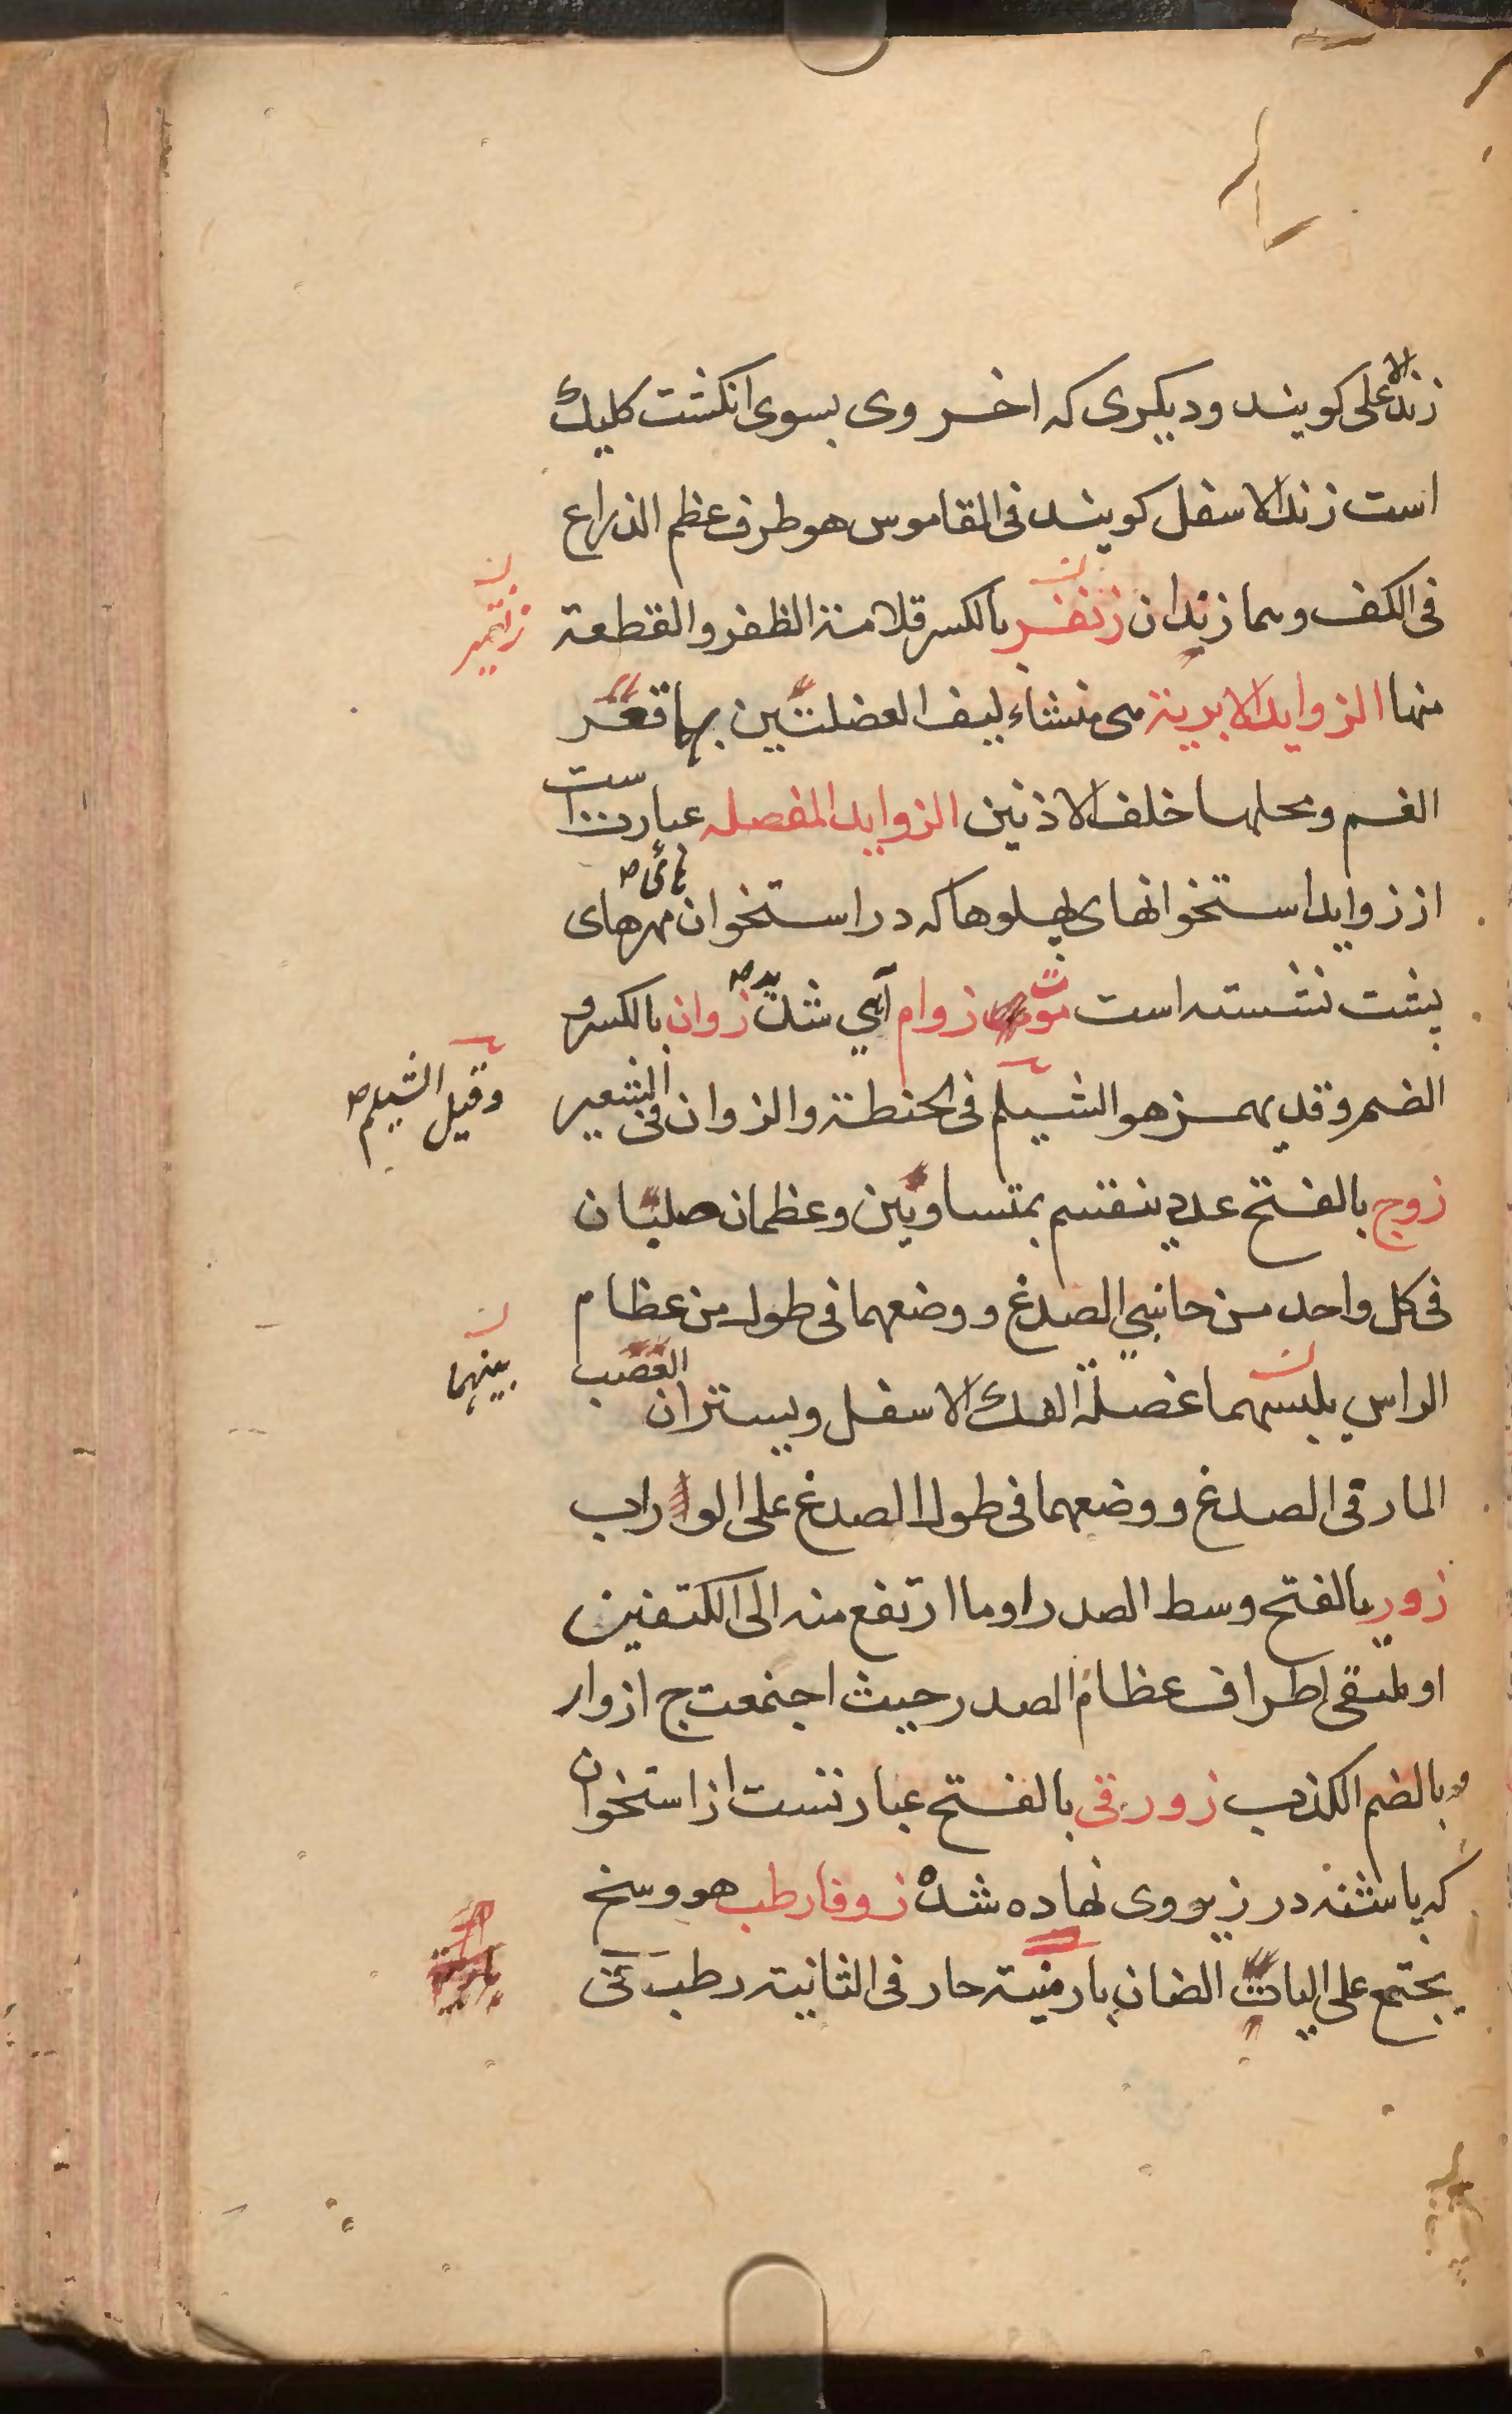 زند الاعلی کویند ودیکری که اخر وی بسوی انکشت کلیک
است زند الاسفل کویند فی المقاموس هو طرف عظم الذراع
فی الکف وهما زندان زنفر بالکسر قلامة الظفر والقطعة
زنقیر
منها الزواید الابریة هی منشاء لیف العضلتین بها قعر
الفم ومحلها خلف الاذنین الزواید المفصله عبارت است
از زواید استخوانهای پهلوها که در استخوان مهرهای
هائ ص
پشت نشسته است موت زوام آبی شدید ص زوان بالکسر و
الضم وقد یهمز هو الشیلم فی الحنطة والزوان فی الشعیر
وقیل الشیلم ص
زوج بالفتح عدد ینقسم بمتساویین وعظمان صلبان
فی کل واحد من جانبی الصدغ ووضعهما فی طول من عظام
الراس یلبسهما عضلة الفک الاسفل ویستران العصب
بینهما
المار فی الصدغ ووضعهما فی طول الصدغ علی الوراب
زور بالفتح وسط الصدر او ما ارتفع منه الی الکتفین
او ملتقی اطراف عظام الصدر حیث اجتمعت ج ازوار
وبالضم الکذب زورقی بالفتح عبارتست از استخوان
که پاشنه در زیر وی نهاده شده زوفا رطب هو وسخ
یجتمع علی الیات الضان بارمنیة حار فی الثانیة رطب فی